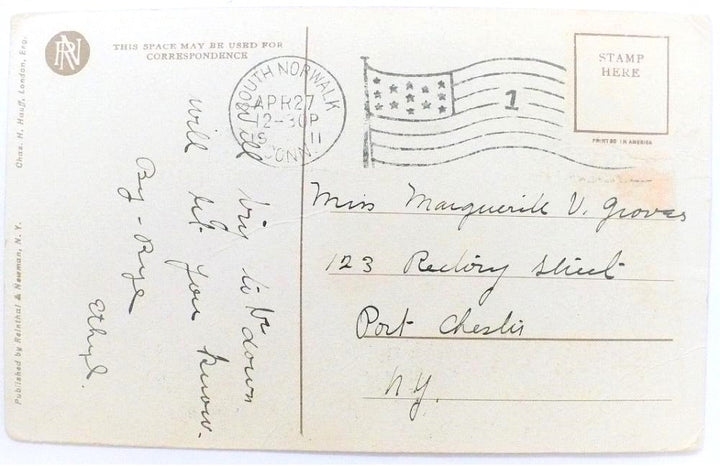 RN
THIS SPACE MAY BE USED FOR
CORRESPONDENCE
SOUTH NORWALK
APR 27
12-30P
1911
CONN.
1
STAMP
HERE
PRINTED IN AMERICA
Chas. H. Hauff, London, Eng.
Published by Reinthal & Newman, N. Y.
Will try to be down
will let you know.
By-Bye
Ethyl.
Miss Marguerite V. Groves
123 Rectory Street
Port Chester
N.Y.